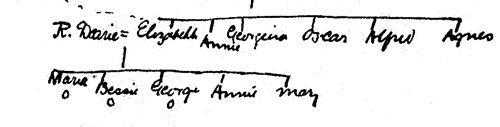 R. Davie = Elizabeth Annie Georgina Oscar Alfred Agnes
Maria Bessie George Annie May